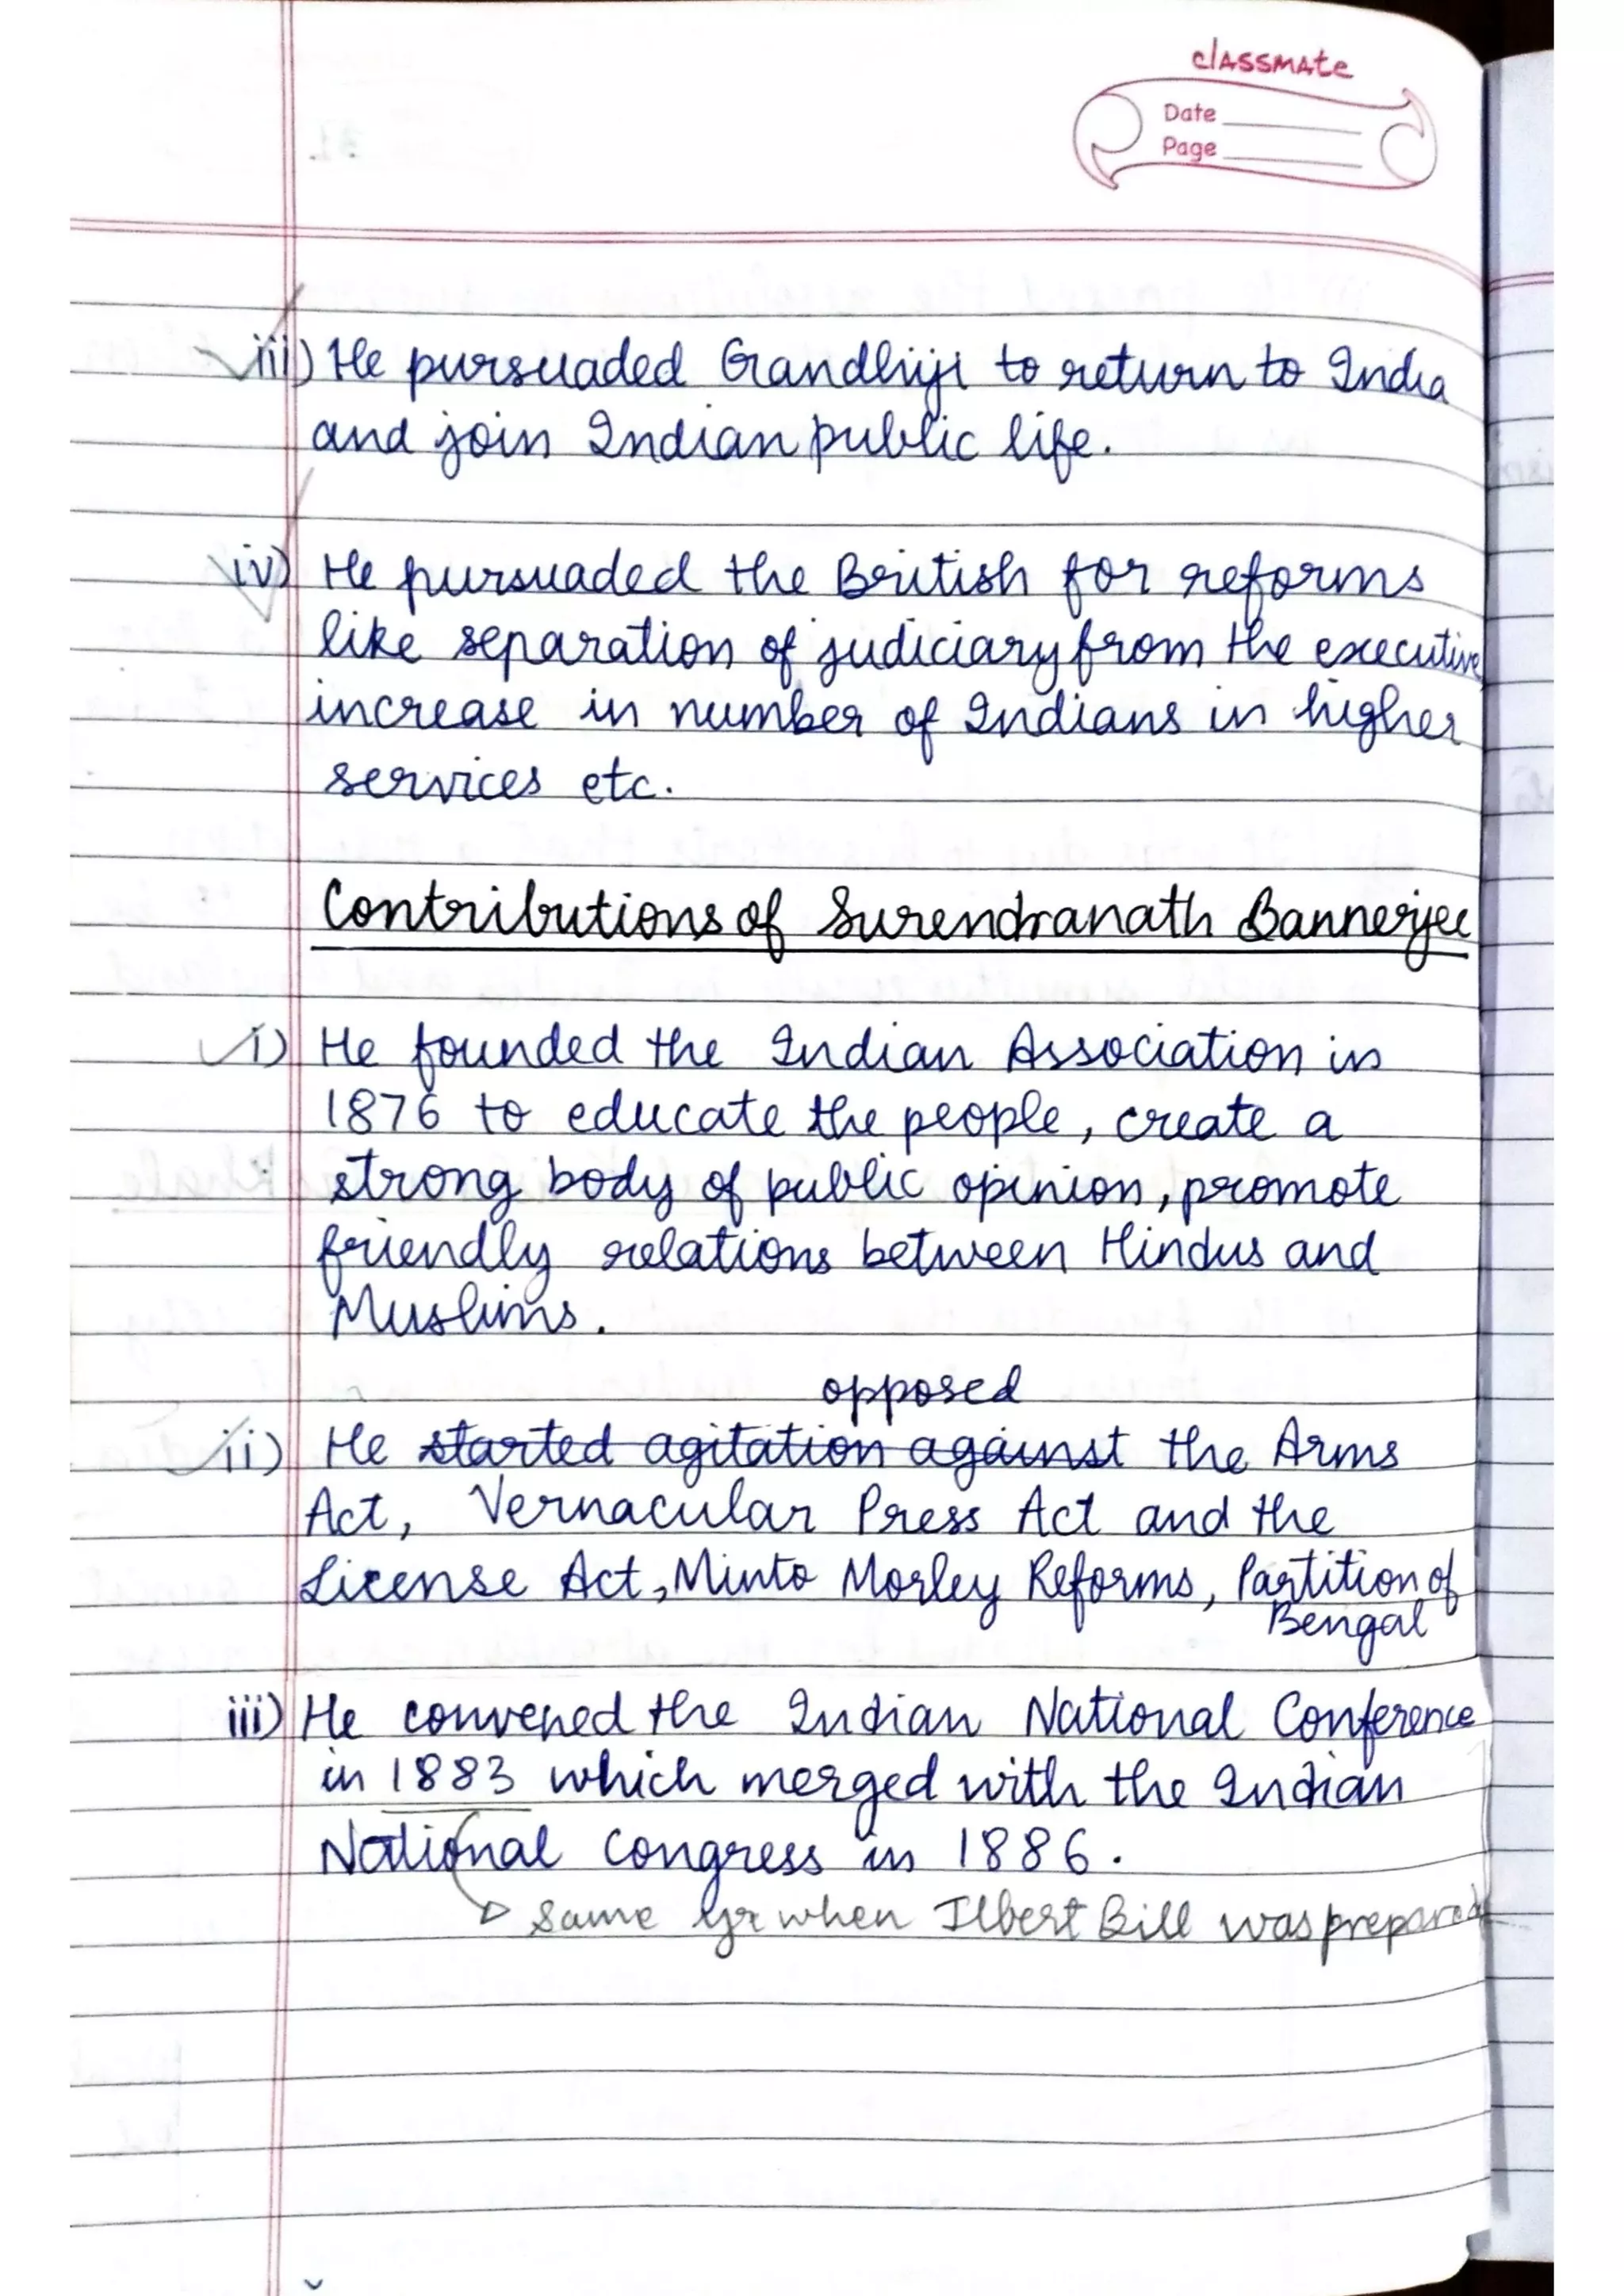 classmate
Date
Page
31.
iii) He pursuaded Gandhiji to return to India
and join Indian public life.
iv) He pursuaded the British for reforms
like separation of judiciary from the executive
increase in number of Indians in higher
services etc.
Contributions of Surendranath Bannerjee
i) He founded the Indian Association in
1876 to educate the people, create a
strong body of public opinion, promote
friendly relations between Hindus and
Muslims.
opposed
ii) He started agitation against the Arms
Act, Vernacular Press Act and the
License Act, Minto Morley Reforms, Partition of
Bengal
iii) He convened the Indian National Conference
in 1883 which merged with the Indian
National Congress in 1886.
Same yr when Ilbert Bill was prepared